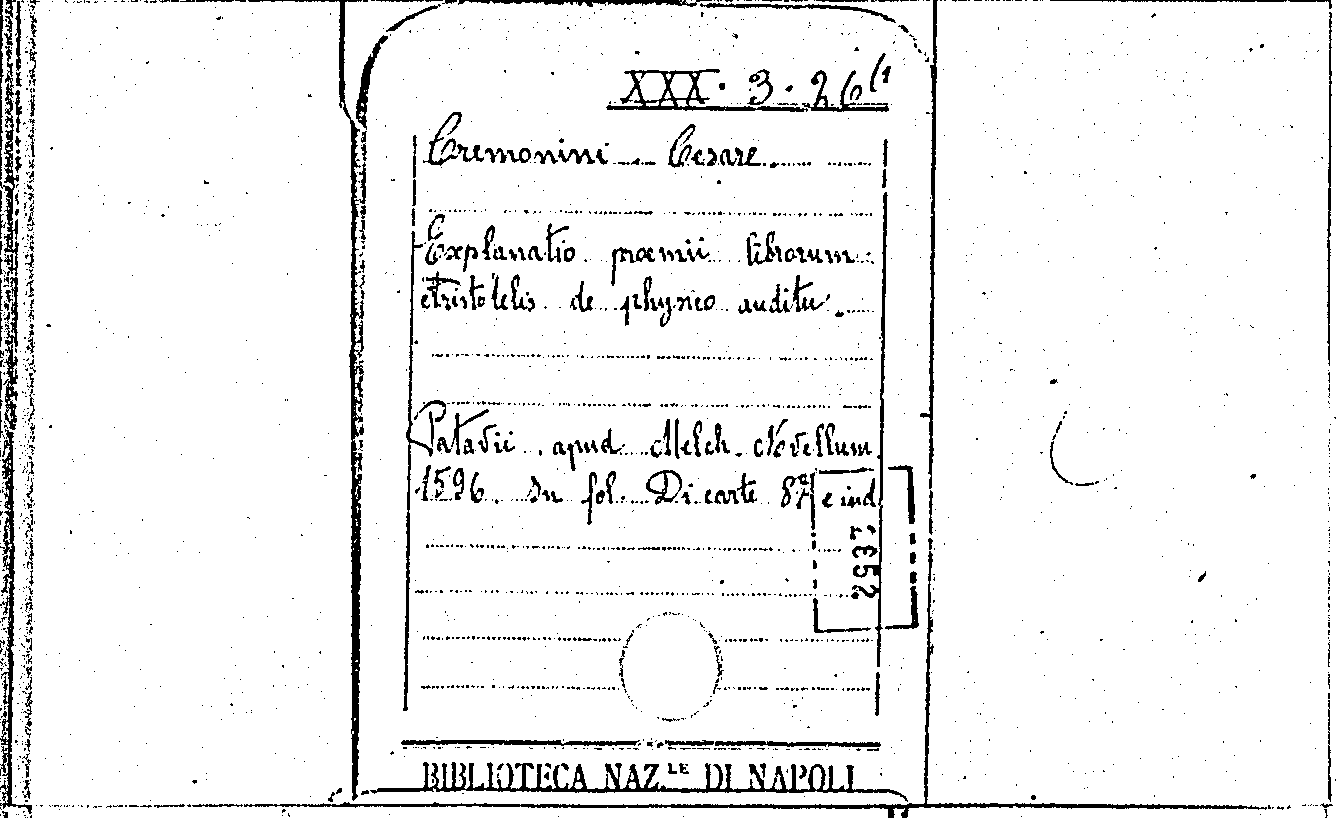 XXX. 3. 26(1
Cremonini Cesare.
Explanatio proemii librorum
Aristotelis de physico auditu.
Patavii apud Melch. Novellum
1596. In fol. Di carte 87 e ind.
2852
BIBLIOTECA NAZ.LE DI NAPOLI